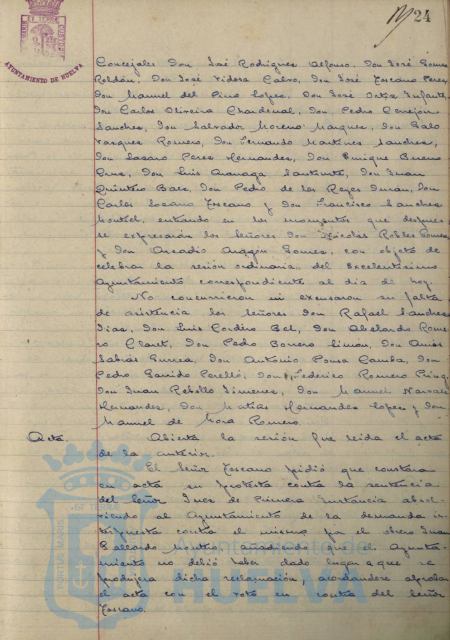 24
AYUNTAMIENTO DE HUELVA
Concejales Don José Rodriguez Alfonso, Don José Gomez
Roldán, Don José Tidosa Calvo, Don José Toscano Perez,
Don Manuel del Pino Lopez, Don José Ortiz Infante,
Don Carlos Oliveira Chardenal, Don Pedro Cerrejón
Sanchez, Don Salvador Moreno Marquez, Don Galo
Vazquez Romero, Don Fernando Martinez Sanchez,
Don Lazaro Perez Hernandez, Don Enrique Bueno
Cruz, Don Luis Don Juan
Quintero Baez, Don Pedro de los Reyes Duran, Don
Carlos Lozano Toscano y Don Francisco Sanchez
Montiel, entrando en los momentos que despues
se expresarán los Señores Don Nicolas Robles Gomez
y Don Arcadio Aragón Gomez, con objeto de
celebrar la sesión ordinaria del Excelentisimo
Ayuntamiento correspondiente al dia de hoy.
No concurrieron ni excusaron su falta
de asistencia los señores Don Rafael Sanchez
Diaz, Don Luis Cordero Bel, Don Abelardo Rome
ro Claret, Don Pedro Borrero Limon, Don
Don Antonio Ponsa Camba, Don
Pedro Garrido Perelló, Don Federico Romero
Don Juan Rebollo Jimenez, Don Manuel Narvaez
Hernandez, Don Matias Hernandez Lopez y Don
Manuel de Mora Romero.
Acta. Abierta la sesión fue leida el acta
de la anterior.
El Señor Toscano pidió que constara
en acta su protesta contra la sentencia
del Señor Juez de Primera Instancia absol-
viendo al Ayuntamiento de la demanda in
terpuesta contra el mismo por el obrero Juan
Gallardo añadiendo que el Ayunta-
miento no debió haber dado lugar a que se
produjera dicha reclamación, acordandose aprobar
el acta con el voto en contra del Señor
Toscano.
Ayuntamiento de
HUELVA